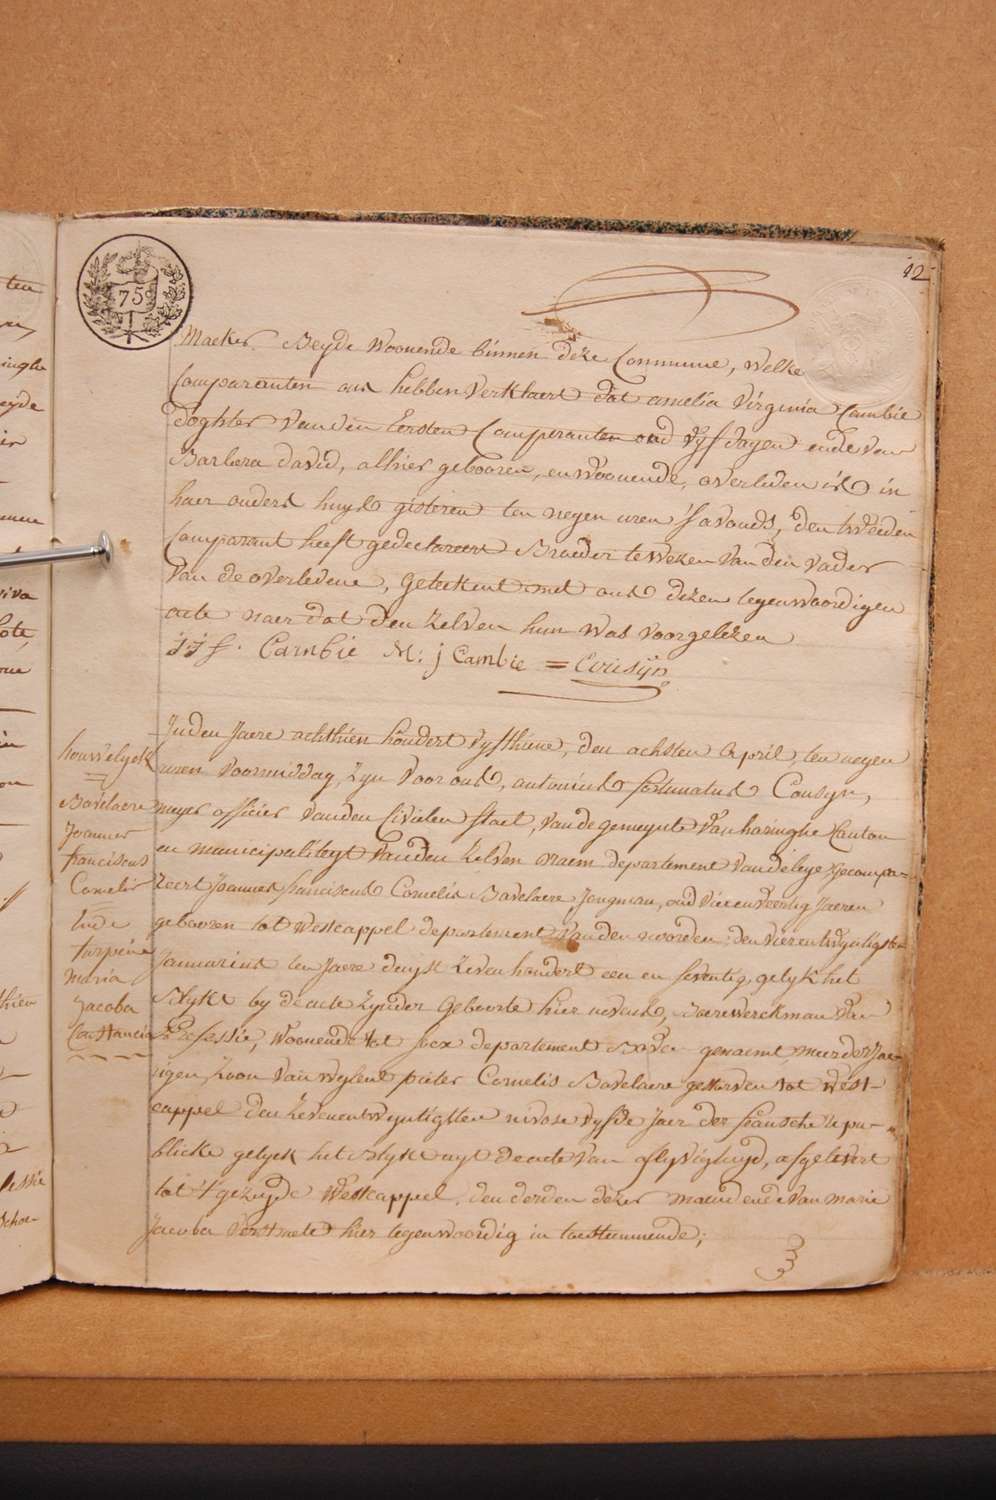 12
75
Maeker. Beyde Woonende binnen deze Commune, welke
Comparanten ons hebben verklaert dat amelia Virginia Cambie
doghter van den Eersten Comparanten oud vyf dagen ende van
Barbera david, alhier gebooren, en woonende, overleden is in
haer ouders huys gisteren ten negen uren s'avonds, den tweeden
Comparant heeft gedeclareert Broeder te wezen van den vader
van de overledene, geteekent met ons dezen tegenwoordigen
acte naer dat den zelven hun was voorgelezen
Cambie M: j Cambie = Cousijn
houwelyck
Bavelaere
Joannes
franciscus
Cornelis
Ende
turpein
Maria
Jacoba
Constancia
Inden Jaere achthien hondert vyfthiene, den achsten April, ten negen
uren voormiddag, zyn voor ons, antonius fortunatus Cousyn,
meyer officier vanden Civielen Staet, van de gemeynte van haringhe Canton
en municipaliteyt van den zelven naem departement van de leye gecompa-
reert Joannes franciscus Cornelis Bavelaere Jongman, oud vier en veertig Jaeren
gebooren tot Westcappel departement van den noorden den vier en twyntigsten
Januarius ten Jaere duyst zeven hondert een en seventig, gelyk het
Blykt by de acte zynder geboorte hier nevens, Boerewerckman van
Professie, Woonende tot socx departement Boven genaemt, meerderjae-
rigen zoon van wylent pieter Cornelis Bavelaere gestorven tot West-
cappel den zevenentwyntigsten nivose vyfde Jaer der fransche repu-
blicke gelyck het Blykt uyt de acte van aflyvigheyd, afgelevert
tot 't gezeyde Westcappel, den derden dezer maend ende van marie
Jacoba Verstraete hier tegenwoordig in toestemmende;